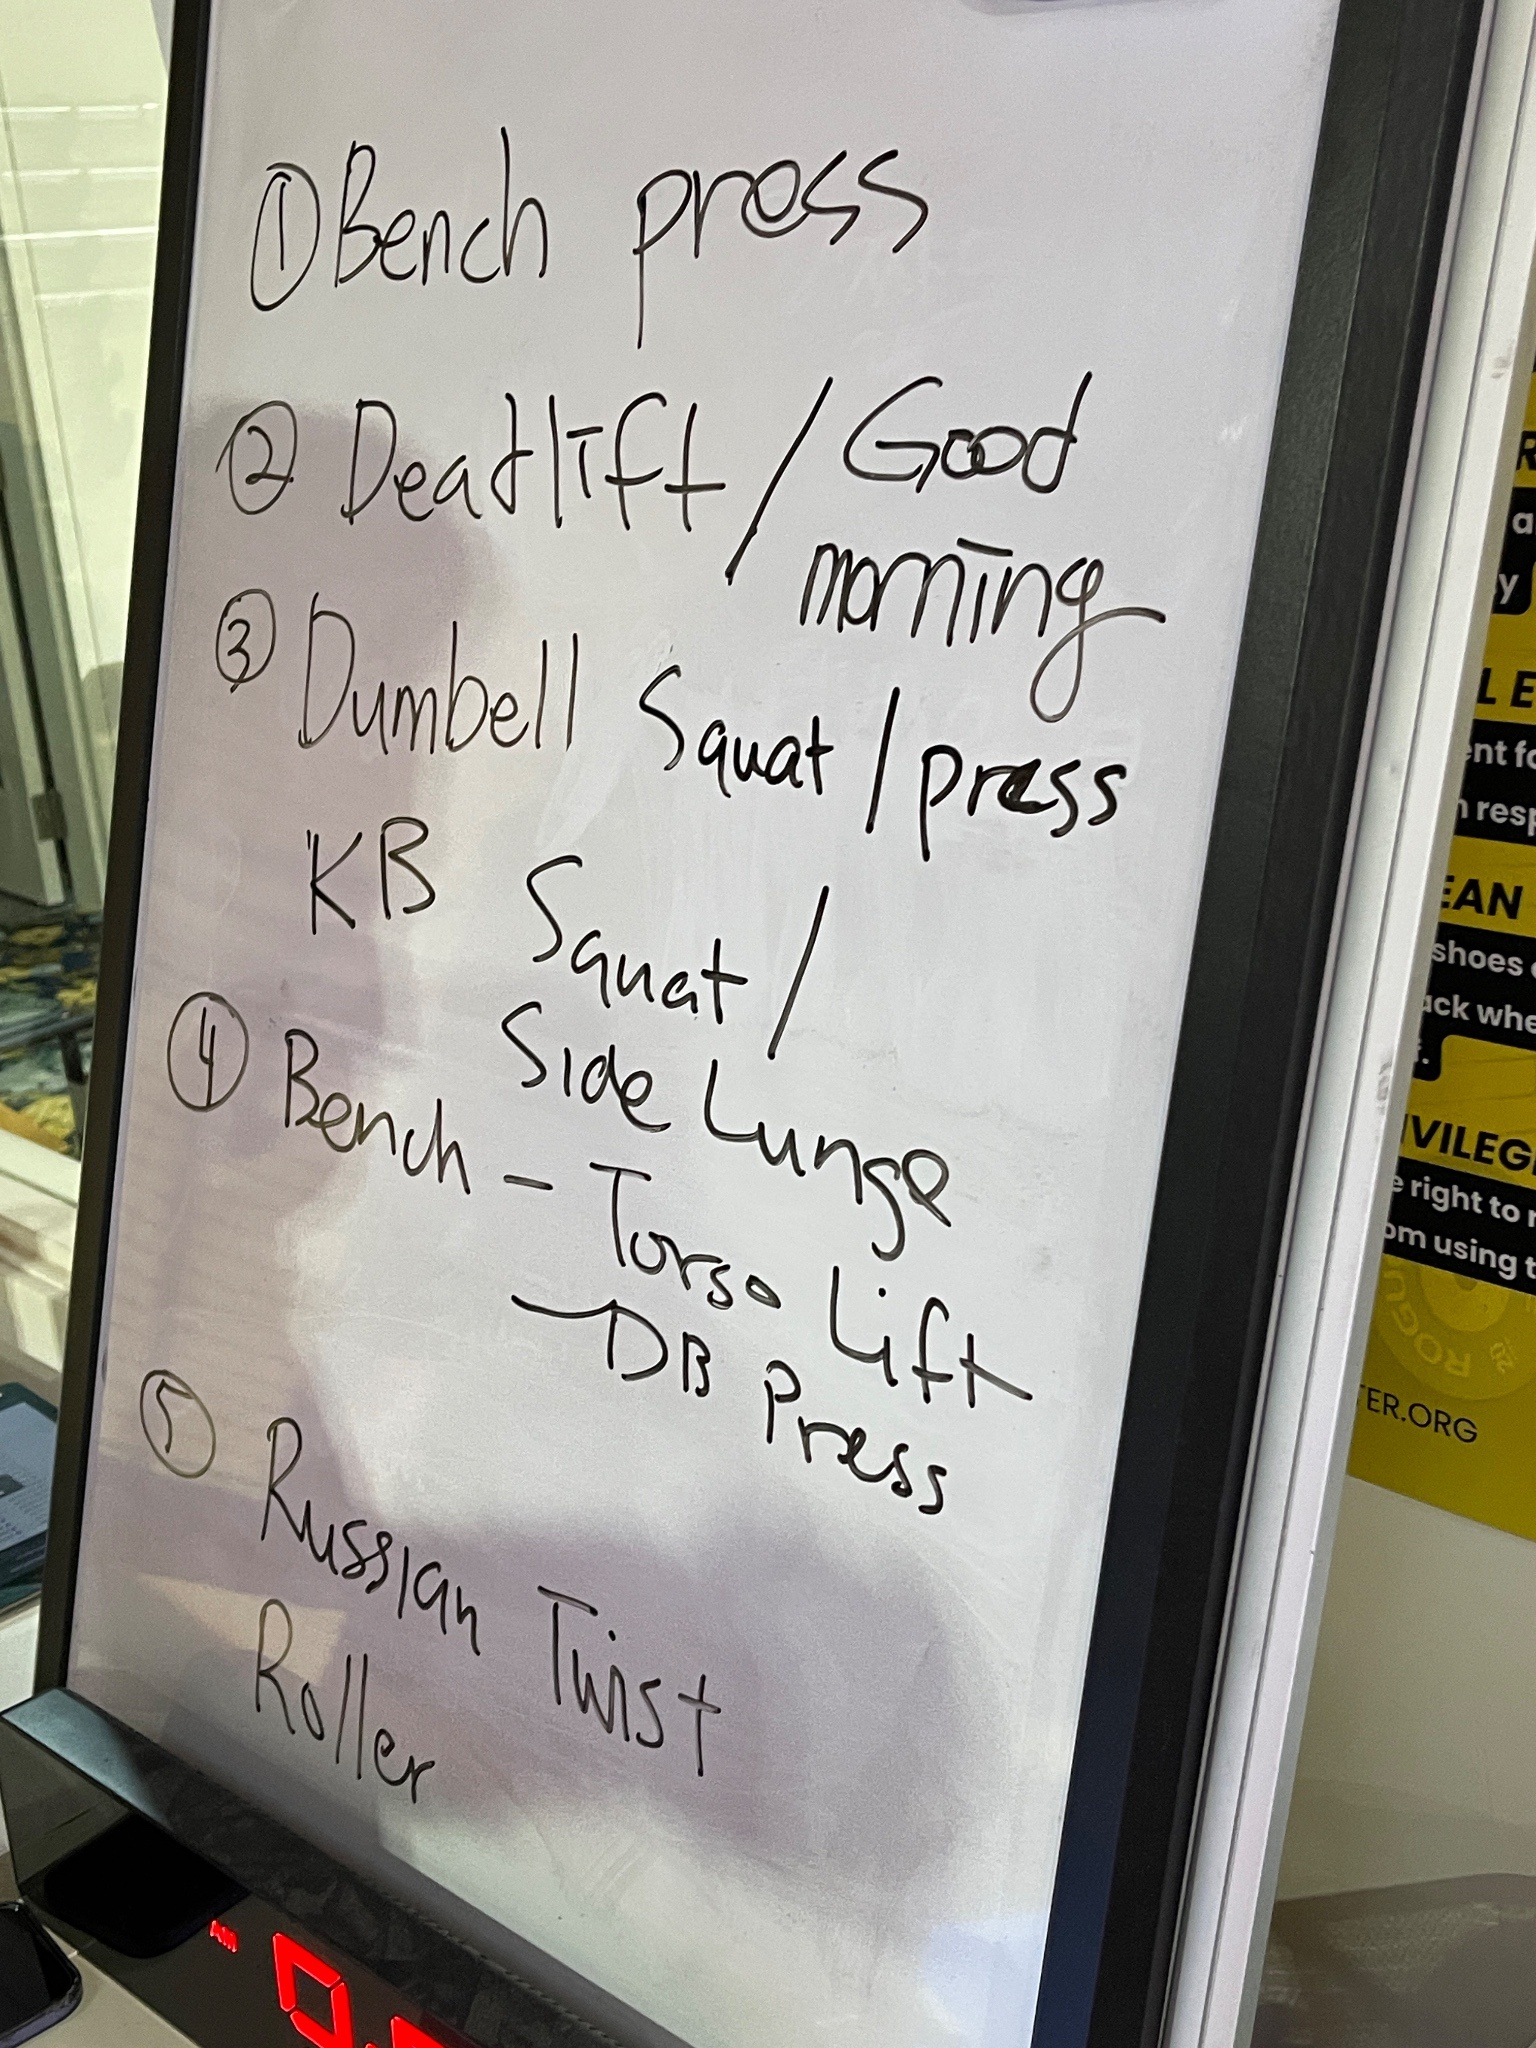 ① Bench press
② Deadlift / Good
morning
③ Dumbell Squat / press
KB Squat /
Side Lunge
④ Bench - Torso Lift
- DB Press
⑤ Russian Twist
Roller
AM
L E
nt fo
resp
EAN
shoes
ack whe
IVILEG
e right to
om using t
ROGU
TER.ORG